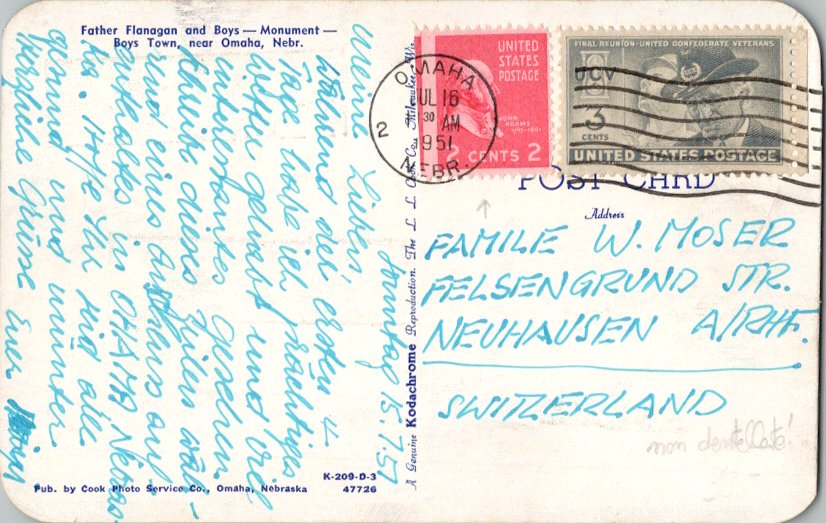 Father Flanagan and Boys — Monument —
Boys Town, near Omaha, Nebr.
Sonntag 15.7.51
Meine Lieben,
Während der ersten 4
Tage habe ich prächtiges
Wetter gehabt und viel
interessantes gesehen.
Schreibe dieses Zeilen wäh-
rend eines Aufenthaltes auf
in OMAHA Nebras-
ka. Hoffe Ihr seid alle
gesund und munter
herzliche Grüsse Euer
K-209-D-3
Pub. by Cook Photo Service Co., Omaha, Nebraska
47726
A Genuine Kodachrome Reproduction. The L. L. Cook Co. Milwaukee, Wis.
OMAHA
2
JUL 16
30 AM
1951
NEBR.
UNITED
STATES
POSTAGE
JOHN
ADAMS
2 CENTS 2
FINAL REUNION · UNITED CONFEDERATE VETERANS
UCV
3
CENTS
UNITED STATES POSTAGE
POST CARD
Address
FAMILE W. MOSER
FELSENGRUND STR.
NEUHAUSEN A/RHF.
SWITZERLAND
non dentellate!